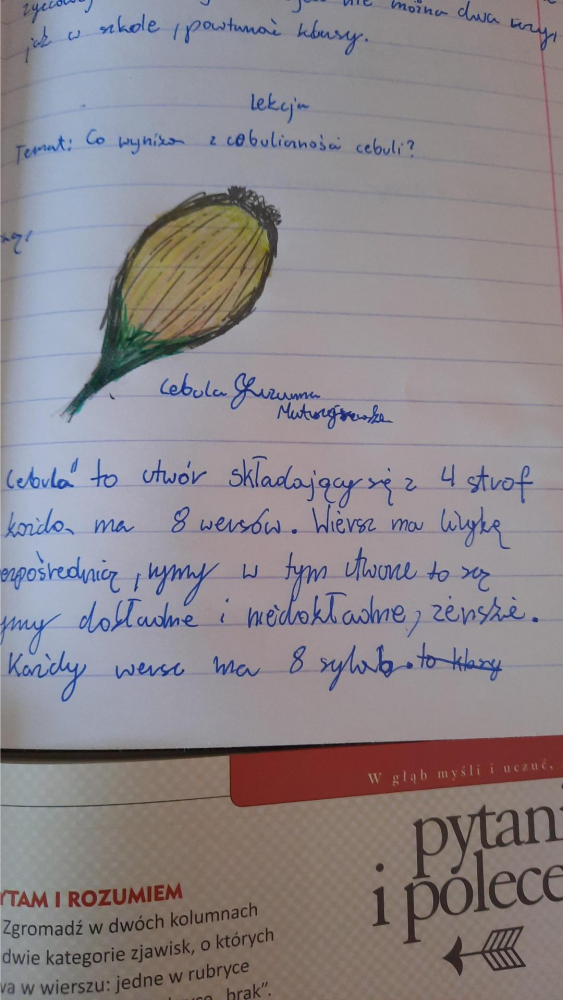 nie można dwa razy,
jak w szkole, powtarzać klasy.
Lekcja
Temat: Co wynika z cebuliczności cebuli?
Cebula Zuzanna
"Cebula" to utwór składający się z 4 strof
każda ma 8 wersów. Wiersz ma lirykę
ezpośrednią, rymy w tym utworze to są
ymy dokładne i niedokładne, żeńskie.
Każdy wers ma 8 sylab. to klasy
W głąb myśli i uczuć,
pytani
i polece
YTAM I ROZUMIEM
Zgromadź w dwóch kolumnach
dwie kategorie zjawisk, o których
wa w wierszu: jedne w rubryce
brak".